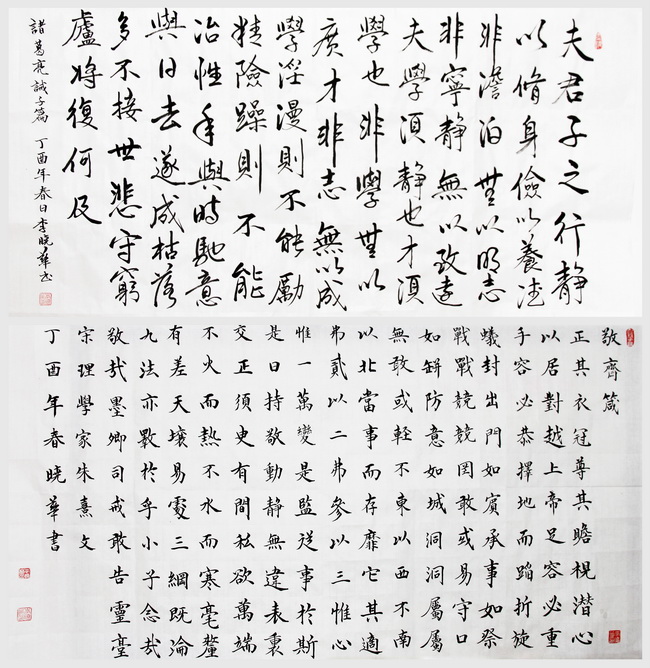 夫君子之行靜
以脩身儉以養德
非澹泊無以明志
非寧靜無以致遠
夫學須靜也才須
學也非學無以
廣才非志無以成
學淫漫則不能勵
精險躁則不能
治性年與時馳意
與日去遂成枯落
多不接世悲守窮
廬將復何及
諸葛亮誡子篇 丁酉年春日李晓華书
敬齊箴
正其衣冠尊其瞻視潛心
以居對越上帝足容必重
手容必恭擇地而蹈折旋
蟻封出門如賓承事如祭
戰戰兢兢罔敢或易守口
如缾防意如城洞洞屬屬
無敢或輕不東以西不南
以北當事而存靡它其適
弗貳以二弗參以三惟心
惟一萬變是監從事於斯
是曰持敬動靜無違表裏
交正須臾有間私欲萬端
不火而熱不水而寒毫釐
有差天壤易處三綱既淪
九法亦斁於乎小子念哉
敬哉墨卿司戒敢告靈臺
宋理學家朱熹文
丁酉年春晓華書